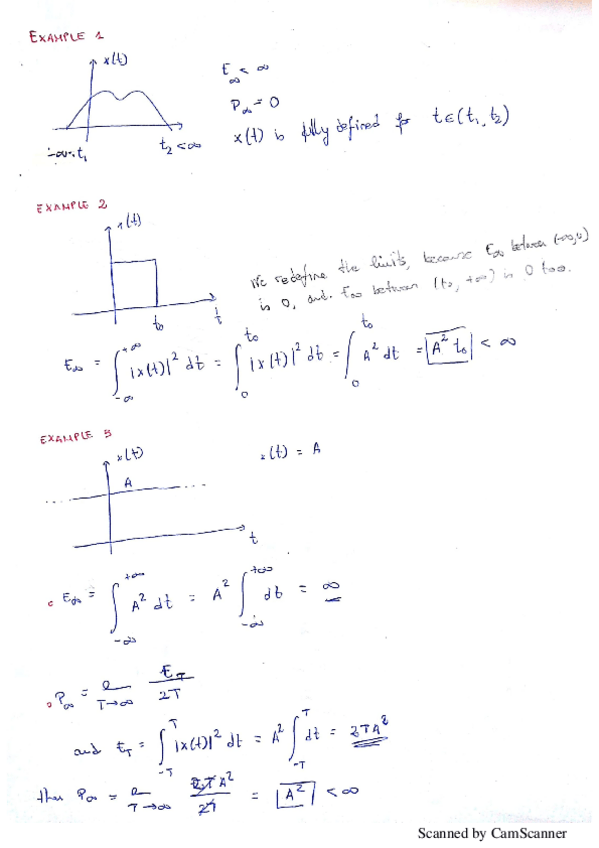 EXAMPLE 1
x(t)
E∞ < ∞
P∞ = 0
x(t) is fully defined for t∈(t₁, t₂)
-∞<t₁
t₂<∞
EXAMPLE 2
x(t)
t₀
t
We redefine the limits, because E∞ between (-∞,0)
is 0, and E∞ between (t₀, +∞) is 0 too.
E∞ = ∫_{-∞}^{+∞} |x(t)|² dt = ∫_0^{t₀} |x(t)|² dt = ∫_0^{t₀} A² dt = A² t₀ < ∞
EXAMPLE 3
x(t)
x(t) = A
A
t
E∞ = ∫_{-∞}^{+∞} A² dt = A² ∫_{-∞}^{+∞} dt = ∞
P∞ = ℓ_{T→∞} E_T / 2T
and E_T = ∫_{-T}^{T} |x(t)|² dt = A² ∫_{-T}^{T} dt = 2TA²
then P∞ = ℓ_{T→∞} 2TA² / 2T = A² < ∞
Scanned by CamScanner